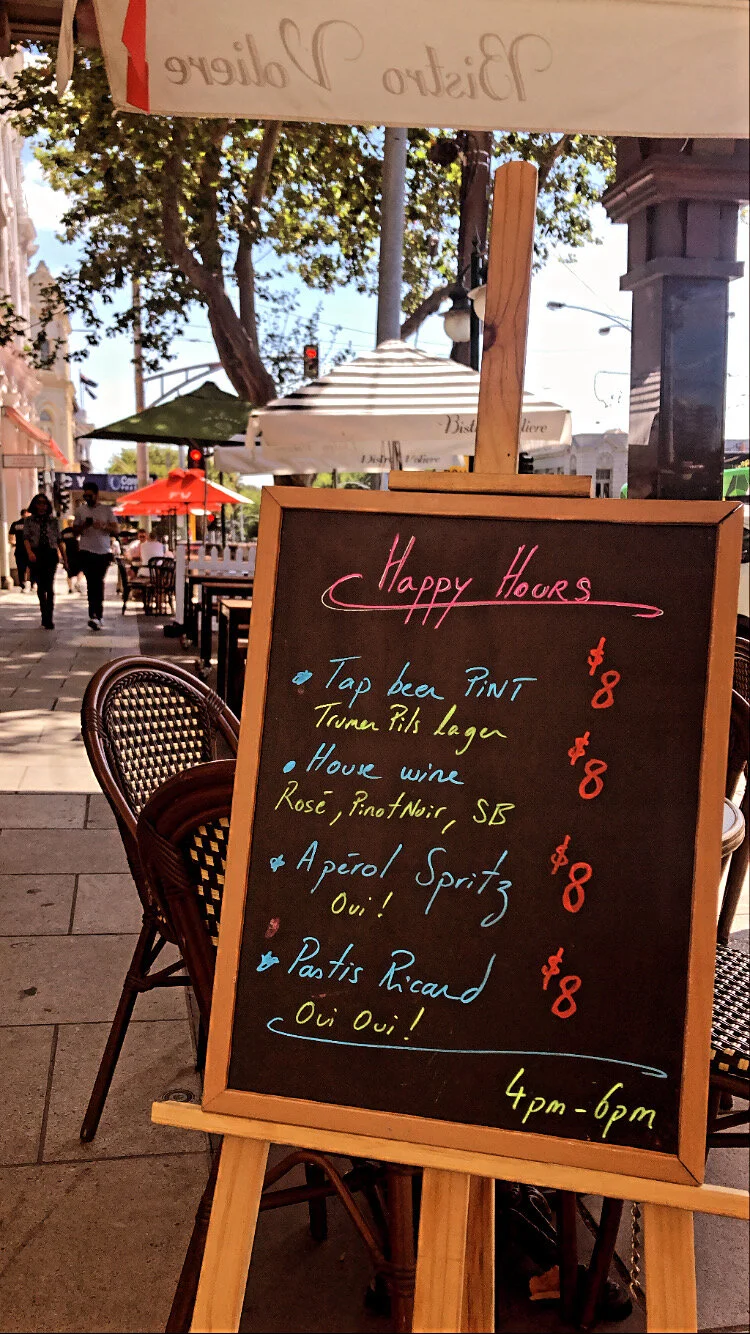 Bistro Voliere
Bistro Voliere
Bistro Voliere
Happy Hours
Tap beer PiNT $8
Trumer Pils Lager
House wine $8
Rosé, Pinot Noir, SB
Apérol Spritz $8
Oui!
Pastis Ricard $8
Oui Oui!
4pm-6pm